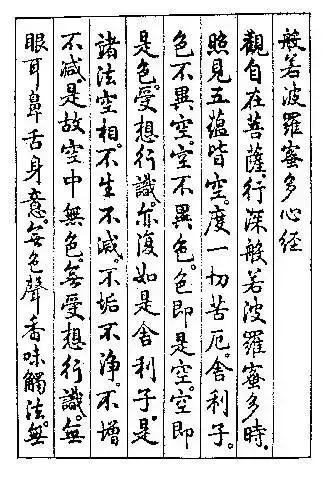 般若波羅蜜多心經
觀自在菩薩。行深般若波羅蜜多時。
照見五蘊皆空。度一切苦厄。舍利子。
色不異空。空不異色。色即是空。空即
是色。受想行識。亦復如是舍利子。是
諸法空相。不生不滅。不垢不淨。不增
不減。是故空中無色。無受想行識。無
眼耳鼻舌身意。無色聲香味觸法。無